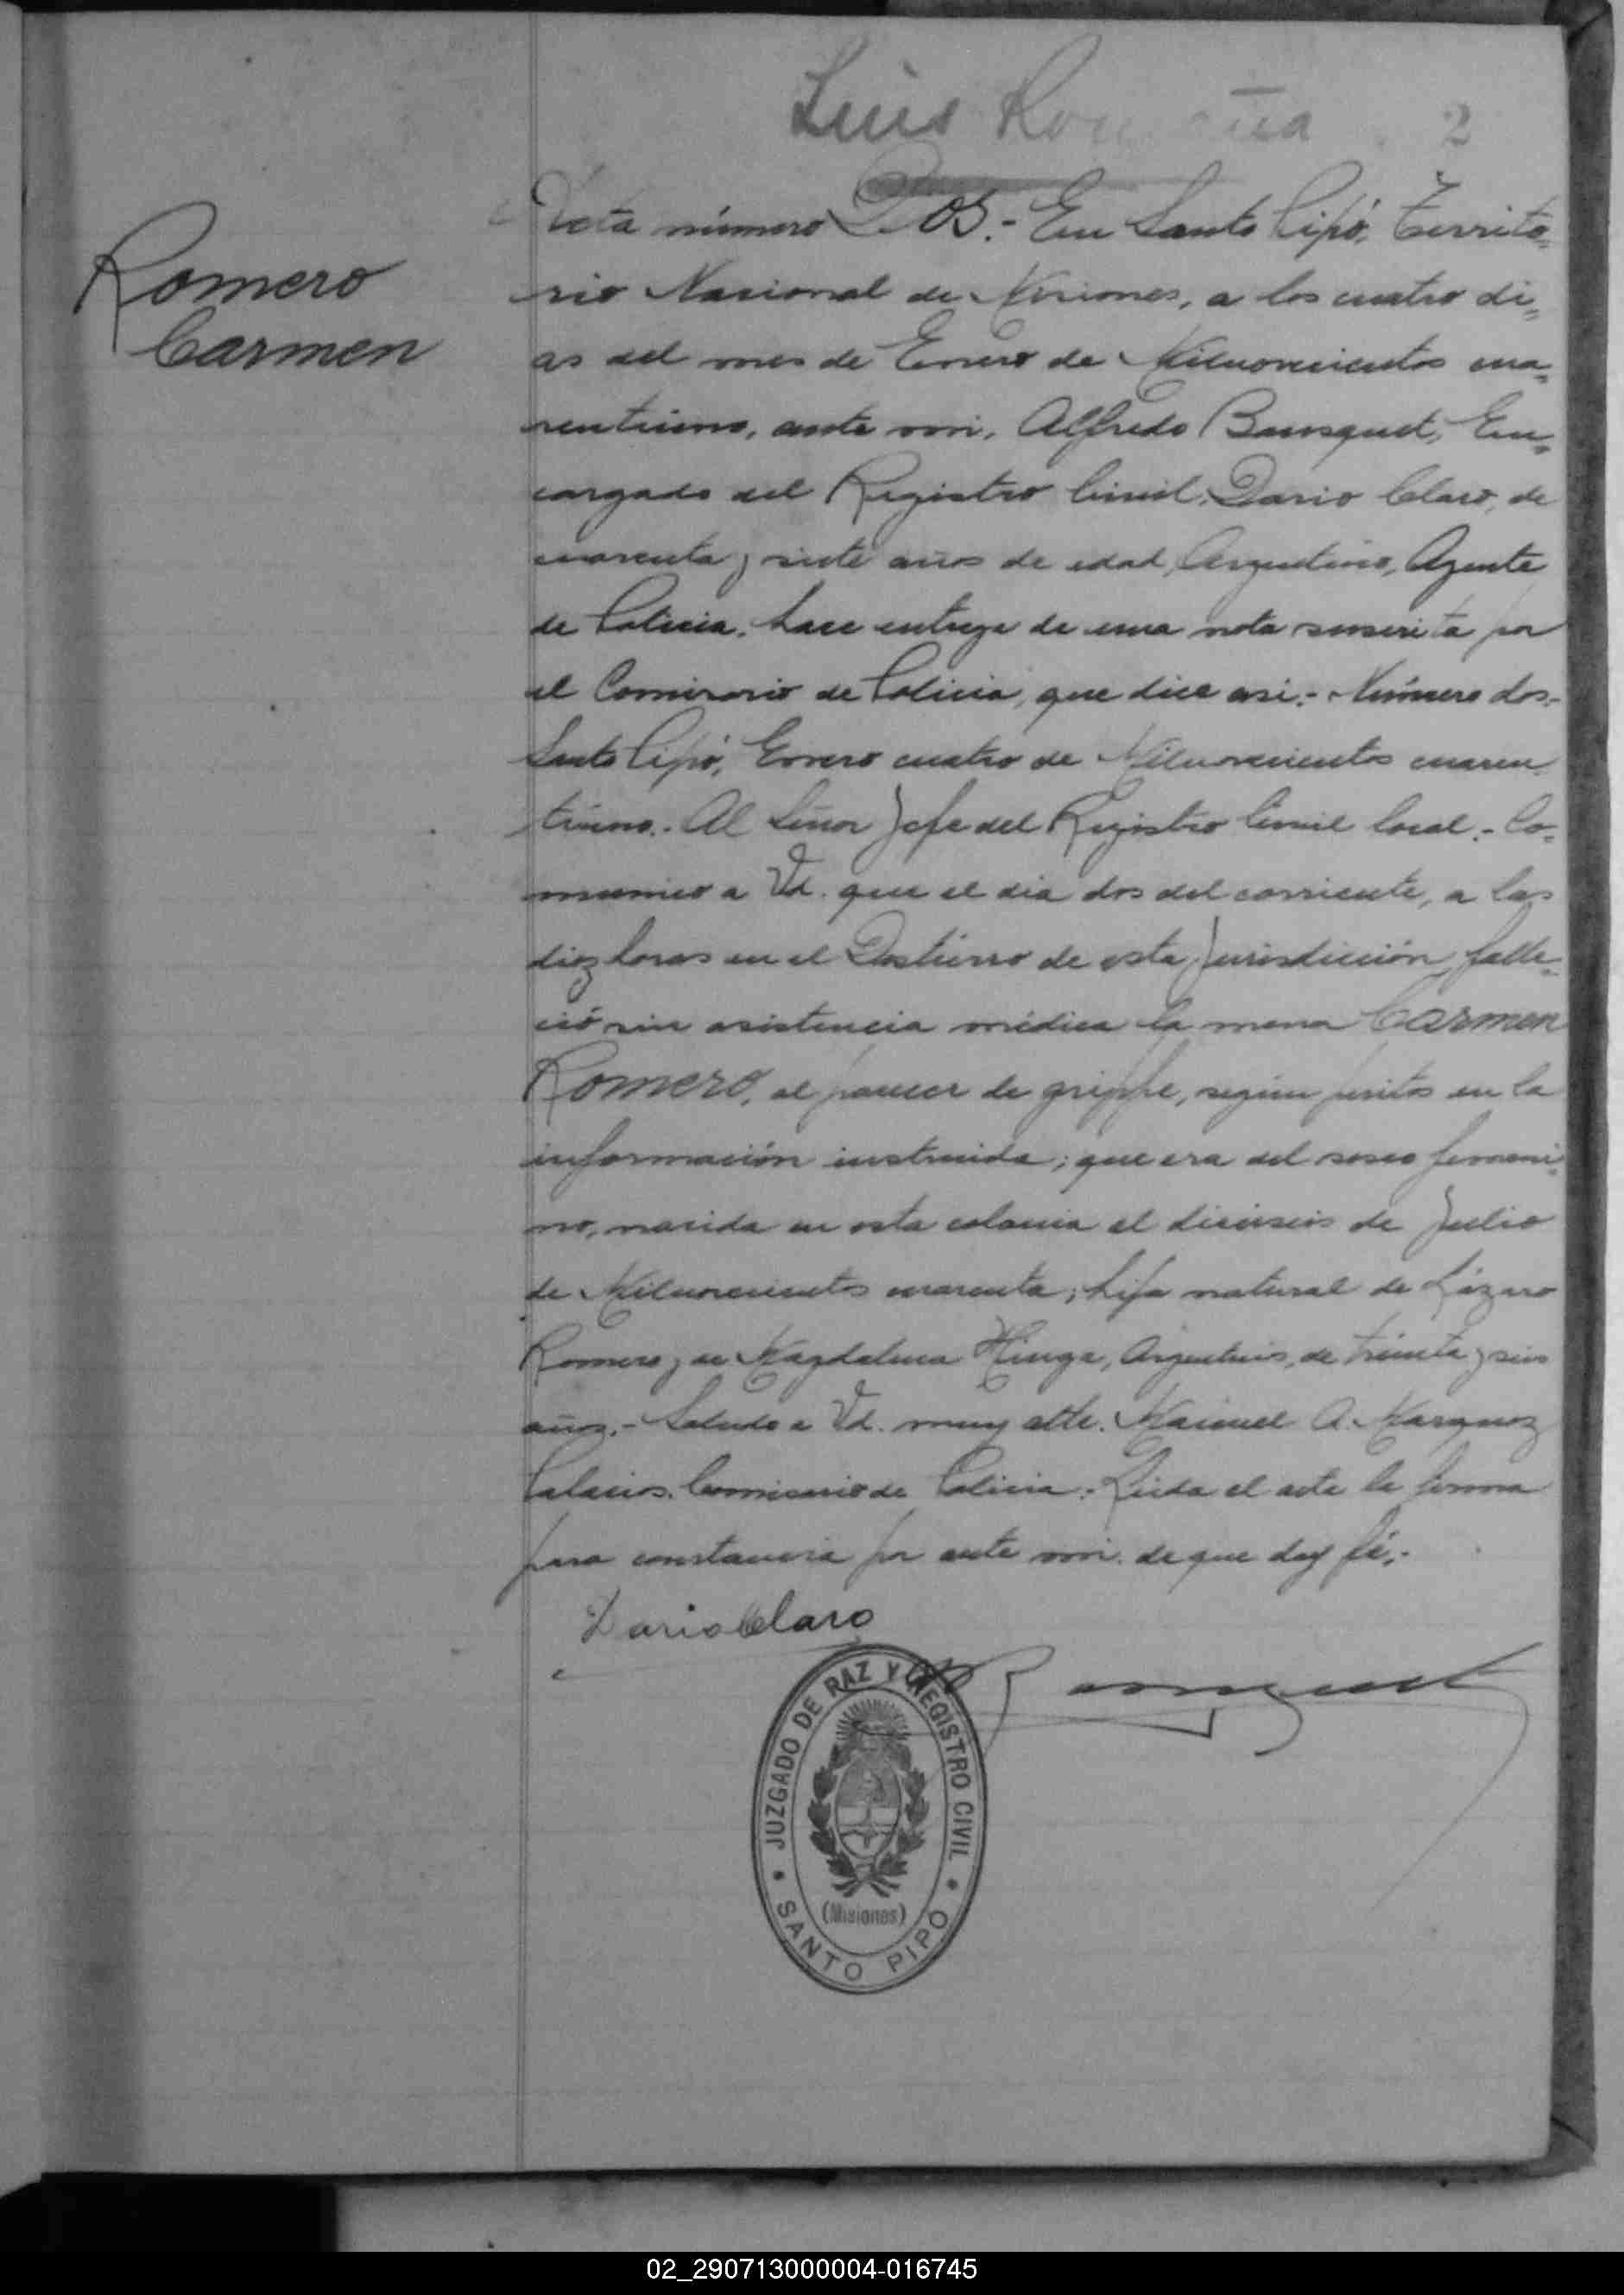 Luis
2
Romero
Carmen
Acta número Dos.- En Santo Pipó, Territo=
rio Nacional de Misiones, a los cuatro di=
as del mes de Enero de Milnovecientos cua=
rentiuno, ante mi, Alfredo Bousquet, En=
cargado del Registro Civil, Dario Claro, de
cuarenta y siete años de edad, Argentino, Agente
de Policia, hace entrega de una nota suscrita por
el Comisario de Policia, que dice asi:- Número dos.-
Santo Pipó, Enero cuatro de Milnovecientos cuaren
tiuno.- Al Señor Jefe del Registro Civil local.- Co=
munico a Vd. que el dia dos del corriente, a las
diez horas en el Destierro de esta Jurisdicción, falle=
ció sin asistencia médica la menor Carmen
Romero, al parecer de grippe, según peritos en la
información instruida; que era del sexo femeni=
no, nacida en esta colonia el dieciseis de Julio
de Milnovecientos cuarenta; hija natural de Lázaro
Romero y de Magdalena, Argentina, de treinta y seis
años.- Saludo a Vd. muy atte. Manuel A. Marquez
Palacios. Comisario de Policia.- Leida el acta la firma
para constancia por ante mi de que doy fé.-
Dario Claro
Bousquet
JUZGADO DE PAZ Y REGISTRO CIVIL
(Misiones)
SANTO PIPO
02_290713000004-016745